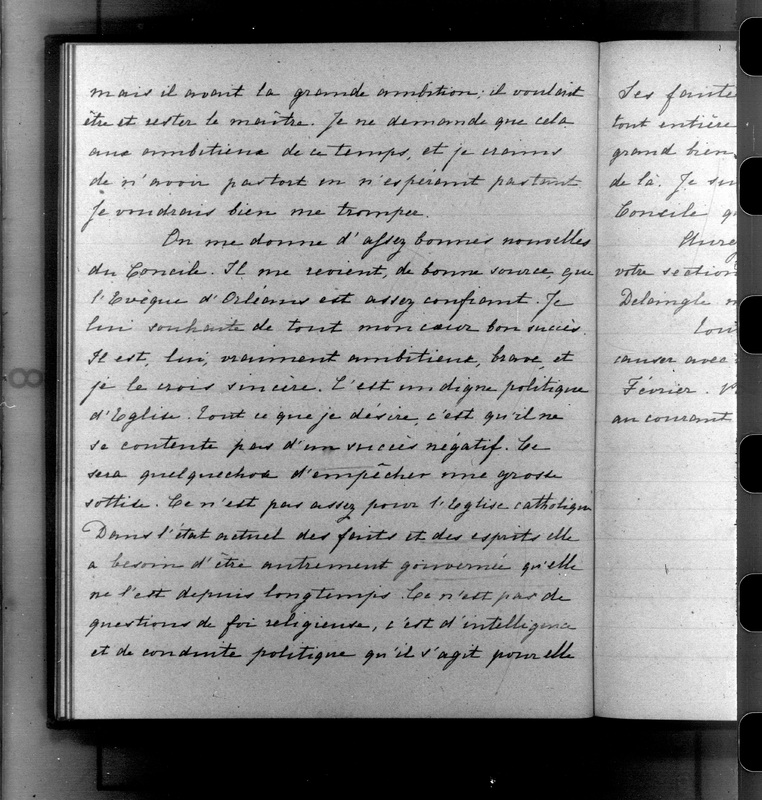 mais il avait la grande ambition ; il voulait
être et rester le maître. Je ne demande que cela
aux ambitieux de ce temps, et je crains
de n'avoir pas tort en n'espérant pas tant
Je voudrais bien me tromper.
On me donne d'assez bonnes nouvelles
du Concile. Il me revient, de bonne source, que
l'Evêque d'Orléans est assez confiant. Je
lui souhaite de tout mon cœur bon succès.
Il est, lui, vraiment ambitieux, brave, et
je le crois sincère. C'est un digne politique
d'Eglise. Tout ce que je désire, c'est qu'il ne
se contente pas d'un succès négatif. Ce
sera quelquechose d'empêcher une grosse
sottise. Ce n'est pas assez pour l'Eglise catholique
Dans l'état actuel des faits et des esprits elle
a besoin d'être autrement gouvernée qu'elle
ne l'est depuis longtemps. Ce n'est pas de
questions de foi religieuse, c'est d'intelligence
et de conduite politique qu'il s'agit pour elle
Ses faute
tout entière
grand bien
de là. Je
Concile
votre section
Delangle
causer avec
Février.
au courant